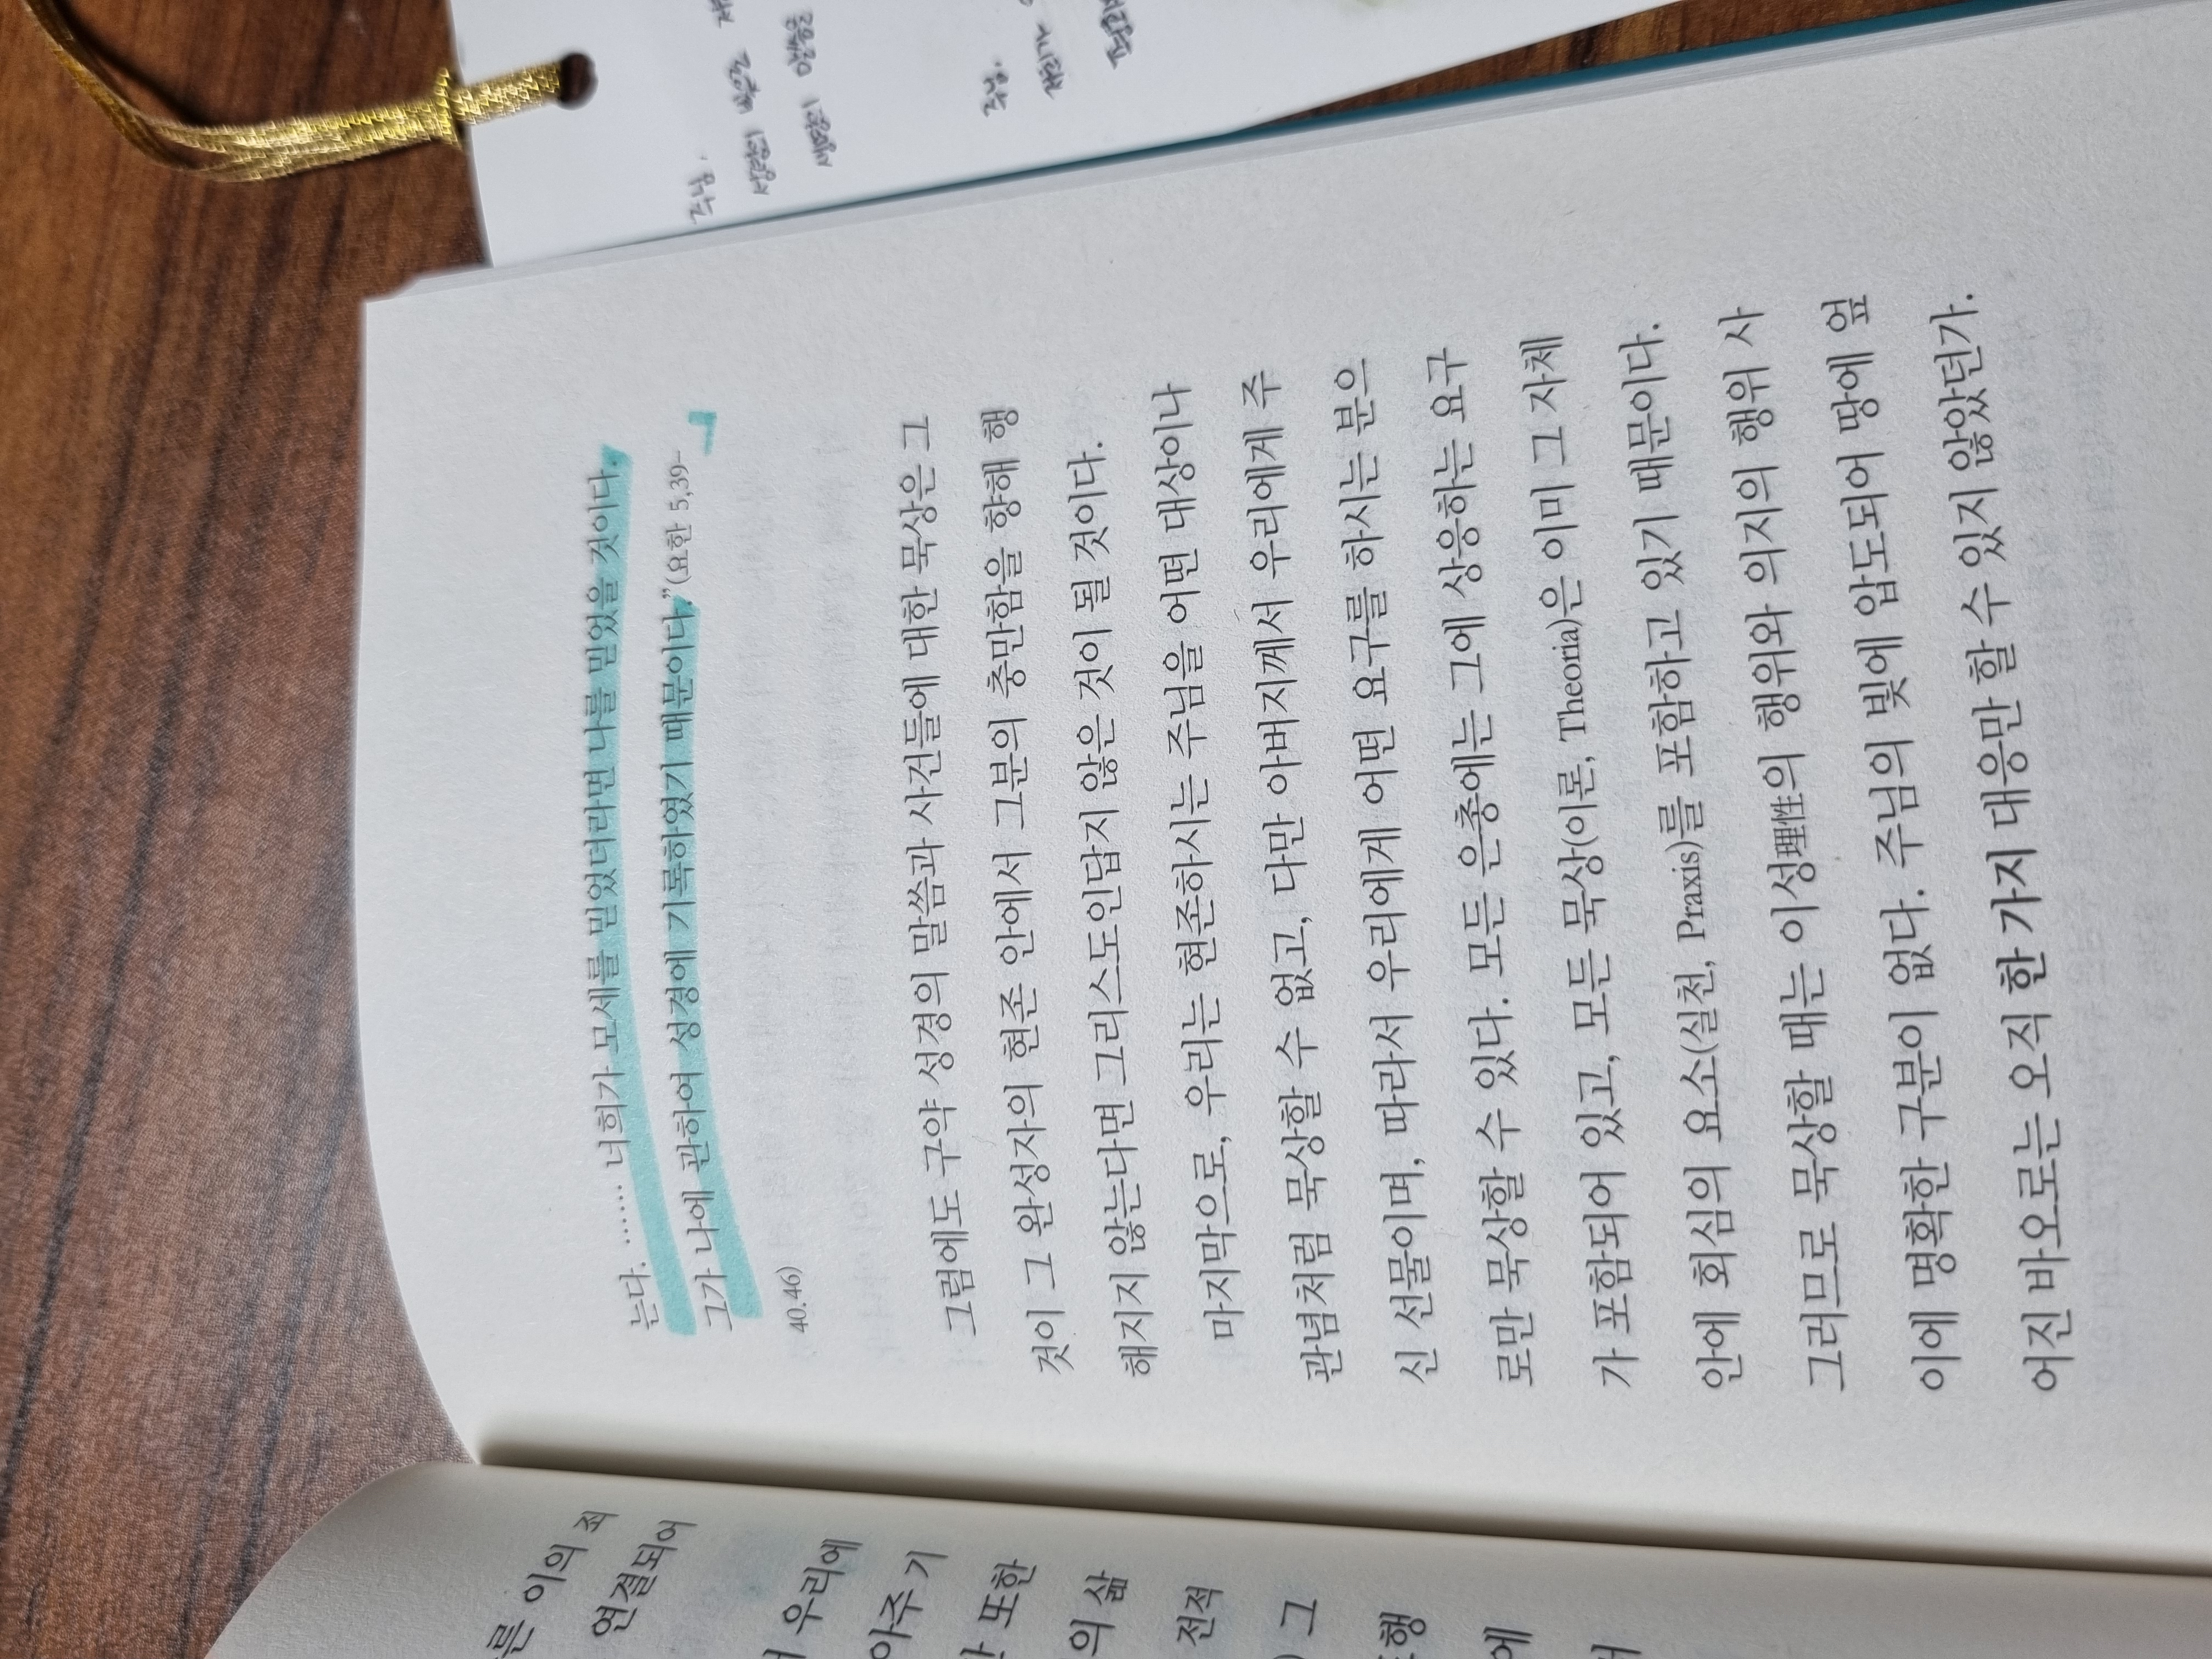 는다. …… 너희가 모세를 믿었더라면 나를 믿었을 것이다.
그가 나에 관하여 성경에 기록하였기 때문이다.”(요한 5,39-
40.46)
그럼에도 구약 성경의 말씀과 사건들에 대한 묵상은 그
것이 그 완성자의 현존 안에서 그분의 충만함을 향해 행
해지지 않는다면 그리스도인답지 않은 것이 될 것이다.
마지막으로, 우리는 현존하시는 주님을 어떤 대상이나
관념처럼 묵상할 수 없고, 다만 아버지께서 우리에게 주
신 선물이며, 따라서 우리에게 어떤 요구를 하시는 분으
로만 묵상할 수 있다. 모든 은총에는 그에 상응하는 요구
가 포함되어 있고, 모든 묵상(이론, Theoria)은 이미 그 자체
안에 회심의 요소(실천, Praxis)를 포함하고 있기 때문이다.
그러므로 묵상할 때는 이성理性의 행위와 의지의 행위 사
이에 명확한 구분이 없다. 주님의 빛에 압도되어 땅에 엎
어진 바오로는 오직 한 가지 대응만 할 수 있지 않았던가.
른 이의 죄
연결되어
우리에
아주 기
또한
의 삶
전적
그
행
에
주님.
성령의 빛으로
생명의 말씀을
주님.
제리가